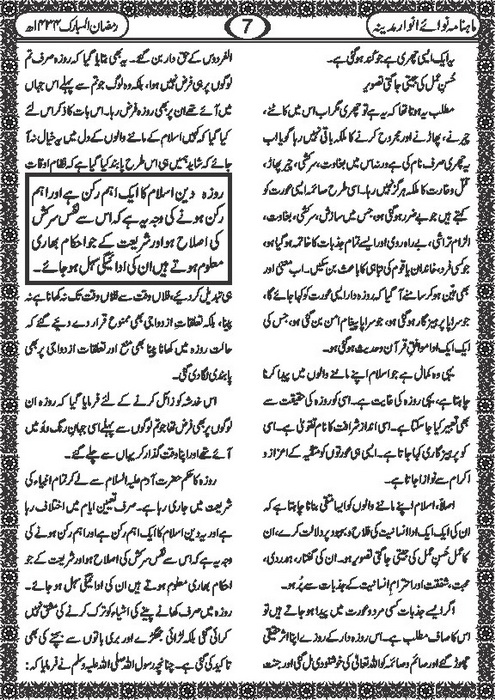 ماہنامہ نوائے انوار مدینہ
7
رمضان المبارک ۱۴۳۴ھ
یہ ایک ایسی چھری ہے جو کند ہوگئی ہے۔
حسنِ عمل کی جیتی جاگتی تصویر
مطلب یہ ہوتا تھا کہ یہ ہے تو چھری مگر اب اس میں کاٹنے،
چیرنے، پھاڑنے اور مجروح کرنے کا ملکہ باقی نہیں رہ گیا اب
یہ چھری صرف نام کی ہے ورنہ اس میں بغاوت، سرکشی، چیر پھاڑ،
قتل وغارت کا ملکہ ہرگز نہیں رہا۔ اسی طرح صائمہ ایسی عورت کو
کہتے ہیں جو بے ضرر ہوگئی ہو، جس میں سازش، سرکشی، بغاوت،
الزام تراشی، بے راہ روی اور ایسے تمام جذبات کا خاتمہ ہوگیا ہو،
جو کسی فرد، خاندان یا قوم کی تباہی کا باعث بن سکیں۔ اب معنی اور
بھی متعین ہو کر سامنے آ گیا کہ روزہ دار ایسی عورت کو کہا جائے گا،
جو سراپا پرہیزگار ہوگئی ہو، جو سراپا پیغام امن بن گئی ہو، جس کی
ایک ایک ادا موافق قرآن وحدیث ہوگئی ہو۔
یہی وہ کمال ہے جو اسلام اپنے ماننے والوں میں پیدا کرنا
چاہتا ہے، یہی روزہ کی غایت ہے۔ اسی کو روزہ کی حقیقت سے
بھی تعبیر کیا جا سکتا ہے۔ اسی انداز شرافت کا نام تقویٰ ہے، اسی
کو پرہیزگاری کہا جاتا ہے۔ ایسی ہی عورتوں کو متقیہ کے اعزاز و
اکرام سے نوازا جاتا ہے۔
اصلاً، اسلام اپنے ماننے والوں کو ایسا متقی بنانا چاہتا ہے کہ
ان کی ایک ایک ادا انسانیت کی فلاح و بہبود پر دلالت کرے، ان
کا عمل حسنِ عمل کی جیتی جاگتی تصویر ہو۔ ان کی گفتار، ہمدردی،
محبت، شفقت اور احترامِ انسانیت کے جذبات سے پُر ہو۔
اگر ایسے جذبات کسی مرد و عورت میں پیدا ہو جاتے ہیں تو
اس کا صاف مطلب ہے۔ اس روزہ دار کے روزے اپنا اثر حقیقی
چھوڑ گئے اور صائم و صائمہ کو اللہ تعالیٰ کی خوشنودی مل گئی اور جنت
الفردوس کے حق دار بن گئے۔ یہ بھی بتایا گیا کہ روزہ تم
لوگوں پر ہی فرض نہیں ہوا، بلکہ وہ لوگ جو تم سے پہلے اس جہاں
میں آئے تھے ان پر بھی روزہ فرض رہا۔ اس بات کا ذکر اس لئے
کیا گیا کہ کہیں اسلام کے ماننے والوں کے دل میں یہ خیال نہ آ
جائے کہ شاید ہمیں ہی اس طرح پابند کیا گیا ہے کہ نظام اوقات
روزہ دین اسلام کا ایک اہم رکن ہے اور اہم
رکن ہونے کی وجہ یہ ہے کہ اس سے نفس سرکش
کی اصلاح ہو اور شریعت کے جو احکام بھاری
معلوم ہوتے ہیں ان کی ادائیگی سہل ہو جائے۔
ہی تبدیل کر دیئے، فلاں وقت سے فلاں وقت تک نہ کھانا ہے نہ
پینا، بلکہ تعلقاتِ ازدواجی بھی ممنوع قرار دے دیئے گئے کہ
حالت روزہ میں کھانا پینا بھی منع اور تعلقات ازدواجی پر بھی
پابندی لگا دی گئی۔
اس خدشہ کو زائل کرنے کے لئے فرمایا گیا کہ روزہ ان
لوگوں پر بھی فرض تھا جو تم سے پہلے اسی جہانِ رنگ و بُو میں
آئے تھے اور اپنا وقت گزار کر یہاں سے چلے گئے۔
روزہ کا حکم حضرت آدم علیہ السلام سے لے کر تمام انبیاء کی
شریعت میں جاری رہا ہے۔ صرف تعیین ایام میں اختلاف رہا
ہے اور یہ دین اسلام کا ایک اہم رکن ہے اور اہم رکن ہونے کی
وجہ یہ ہے کہ اس سے نفس سرکش کی اصلاح ہو اور شریعت کے جو
احکام بھاری معلوم ہوتے ہیں ان کی ادائیگی سہل ہو جائے۔
روزہ میں صرف کھانے پینے کی اشیاء کو ترک کرنے کی مشق نہیں
کرائی گئی بلکہ لڑائی جھگڑے اور بری باتوں سے بچنے کی بھی
تاکید کی گئی ہے۔ چنانچہ رسول اللہ صلی اللہ علیہ وسلم نے فرمایا کہ: